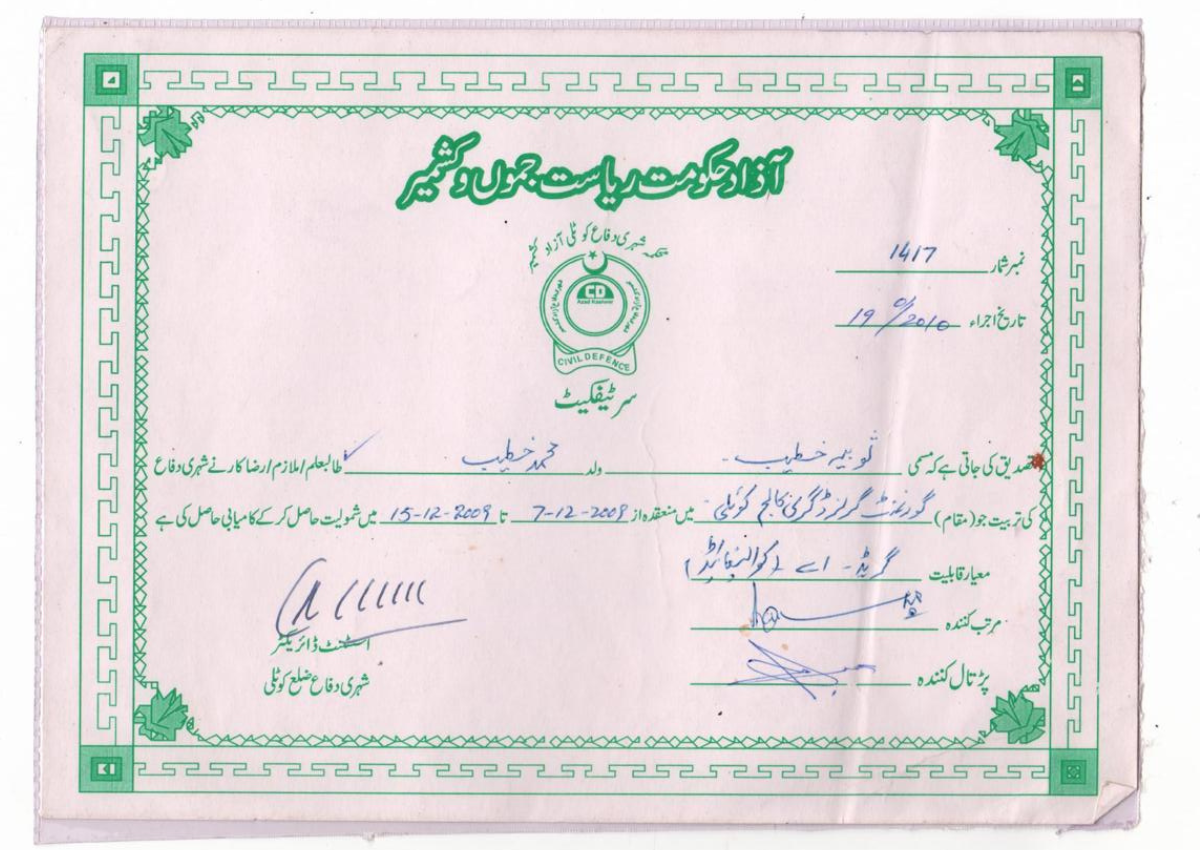 آزاد حکومت ریاست جموں و کشمیر
محکمہ شہری دفاع کوٹلی آزاد کشمیر
نمبر شمار 1417
تاریخ اجراء 19/01/2010
CD
Azad Kashmir
CIVIL DEFENCE
سرٹیفکیٹ
تصدیق کی جاتی ہے کہ مسمی ثوبیہ خطیب ولد محمد خطیب طالبعلم/ملازم/رضا کار نے شہری دفاع
کی تربیت جو (مقام) گورنمنٹ گرلز ڈگری کالج کوٹلی میں منعقدہ از 7-12-2009 تا 15-12-2009 میں شمولیت حاصل کر کے کامیابی حاصل کی ہے
معیار قابلیت گریڈ - اے (کوالیفائیڈ)
مرتب کنندہ
اسسٹنٹ ڈائریکٹر
پڑتال کنندہ
شہری دفاع ضلع کوٹلی